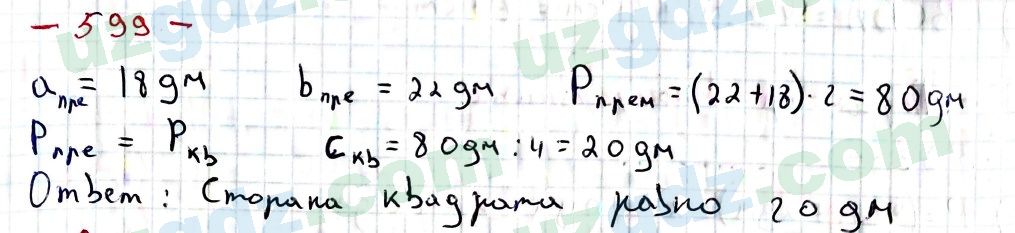 - 599 -
aпре = 18 дм   bпре = 22 дм   Pпрем = (22+18)·2 = 80 дм
Pпре = Pкв   Cкв = 80 дм : 4 = 20 дм
Ответ: Сторана квадрата равно 20 дм
uzgdz.com
uzgdz.com